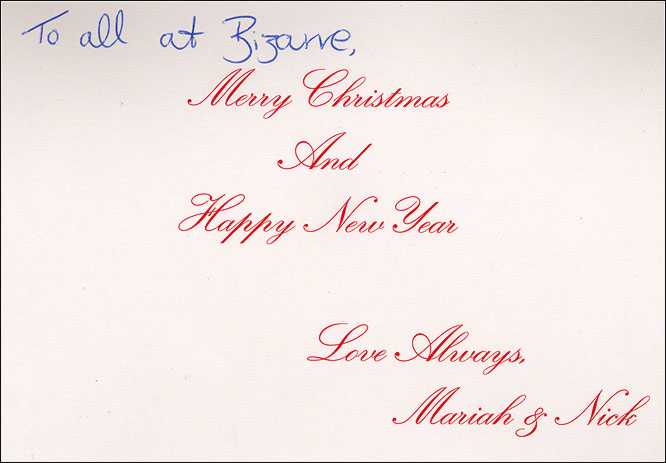 To all at Bizarre,
Merry Christmas
And
Happy New Year
Love Always,
Mariah & Nick